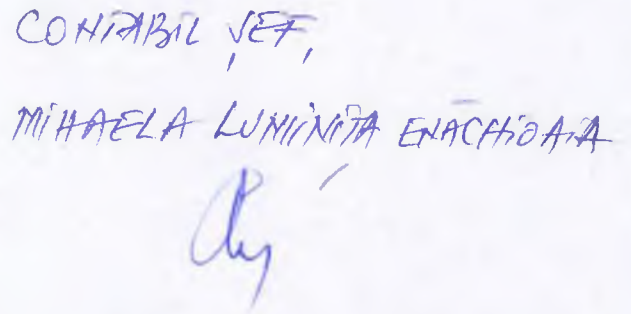 CONTABIL ȘEF,
MIHAELA LUMINIȚA ENACHIOAIA